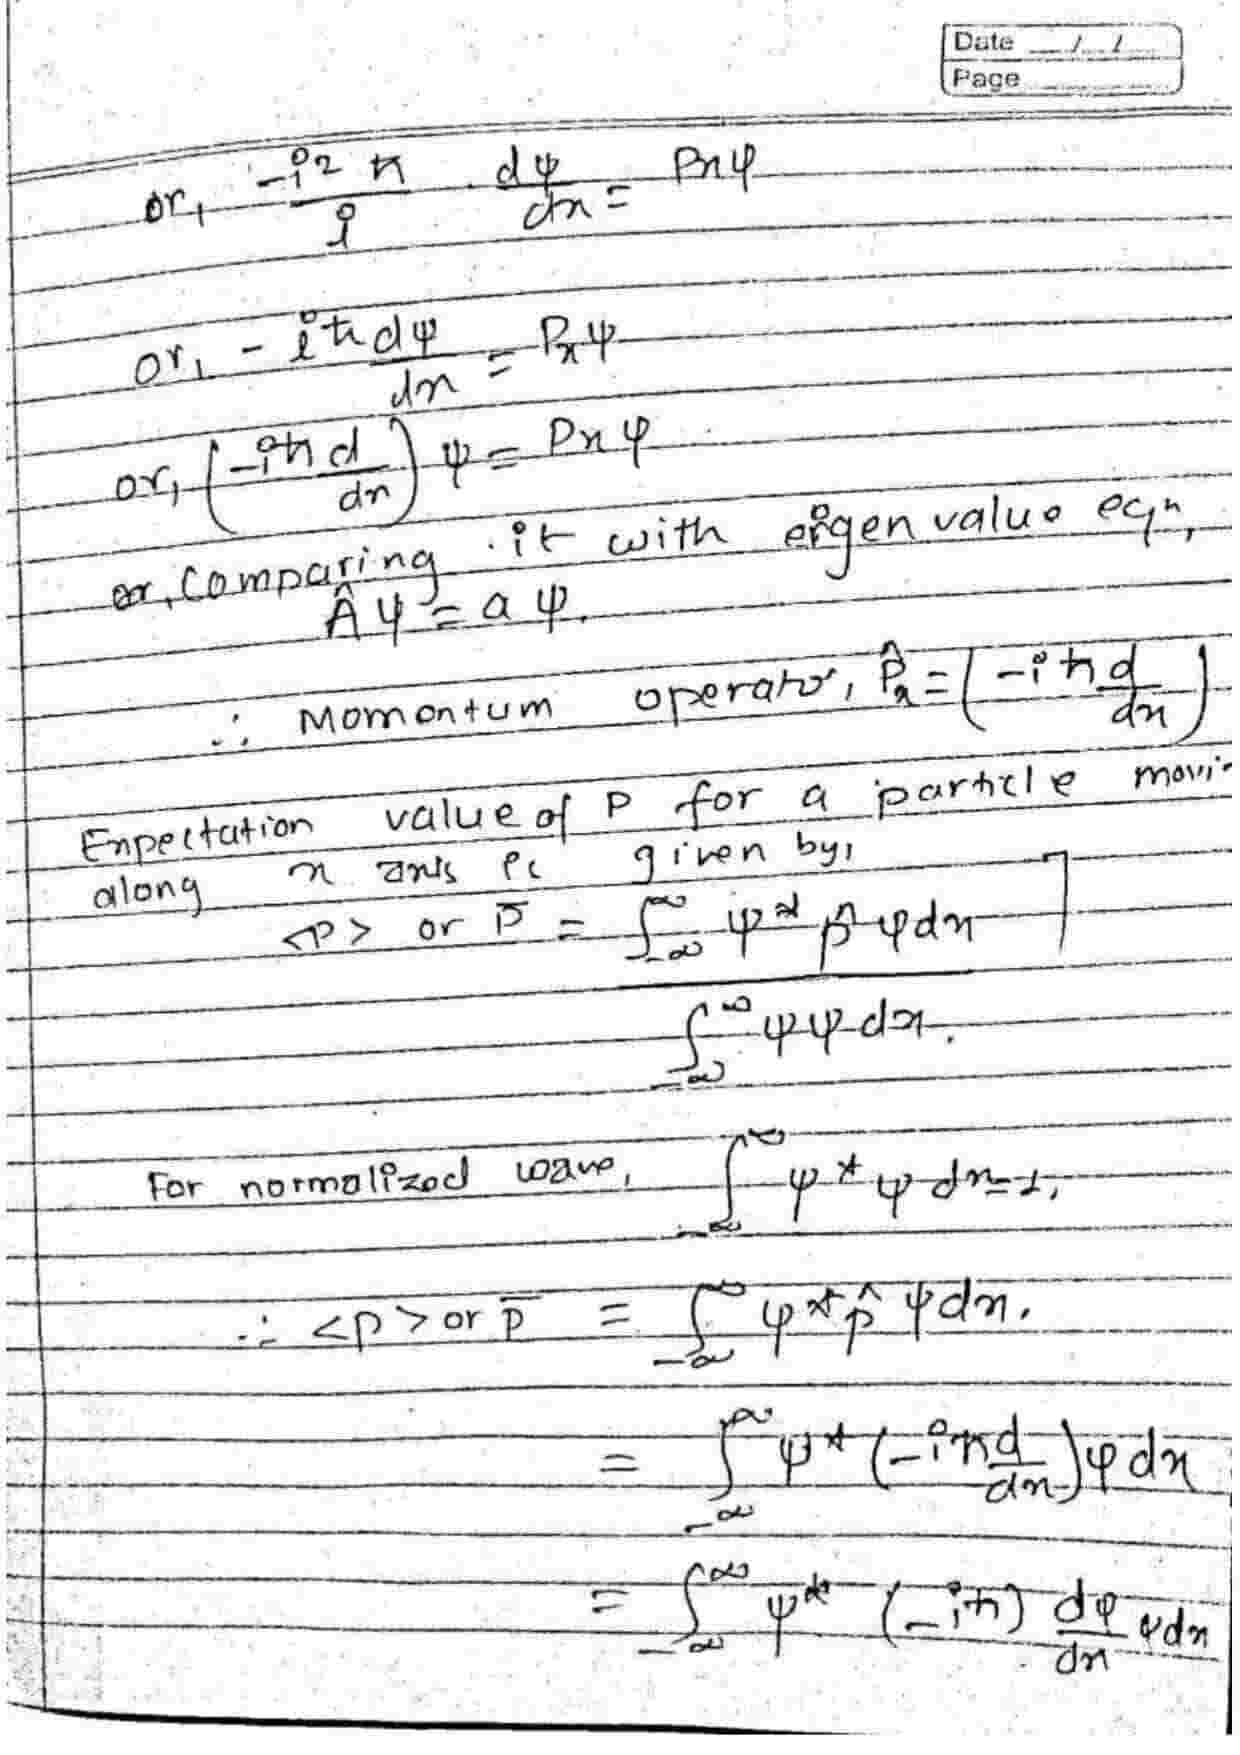 Date / /
Page
or, -i²ħ/i · dψ/dx = Pxψ
or, - iħ dψ/dx = Pxψ
or, (-iħ d/dx) ψ = Pxψ
or, Comparing it with eigen value eqn,
Âψ = aψ.
∴ Momentum operator, P̂x = (-iħ d/dx)
Expectation value of P for a particle movi
along x axis is given by,
<P> or P̄ = ∫-∞^∞ ψ* p̂ ψ dx
∫-∞^∞ ψψ dx.
For normalized wave, ∫-∞^∞ ψ* ψ dx = 1,
∴ <p> or p̄ = ∫-∞^∞ ψ* p̂ ψ dx.
= ∫-∞^∞ ψ* (-iħ d/dx) ψ dx
= ∫-∞^∞ ψ* (-iħ) dψ/dx ψ dx